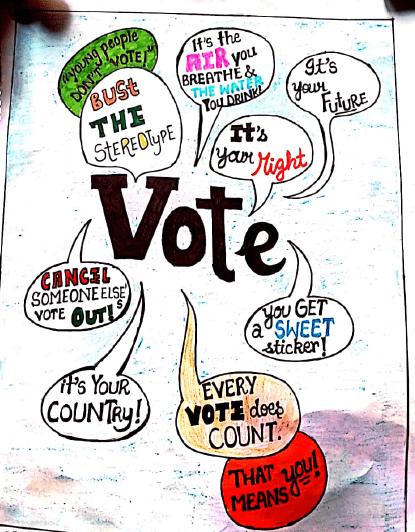 "Young people
DON'T VOTE!"
BUST
THE
STEREOTYPE
It's the
AIR you
BREATHE &
THE WATER
YOU DRINK!
It's
your
Future
It's
your Right
Vote
CANCEL
SOMEONE ELSE'S
VOTE OUT!
you GET
a SWEET
sticker!
it's YOUR
COUNTRY!
EVERY
VOTE does
COUNT.
THAT you!
MEANS